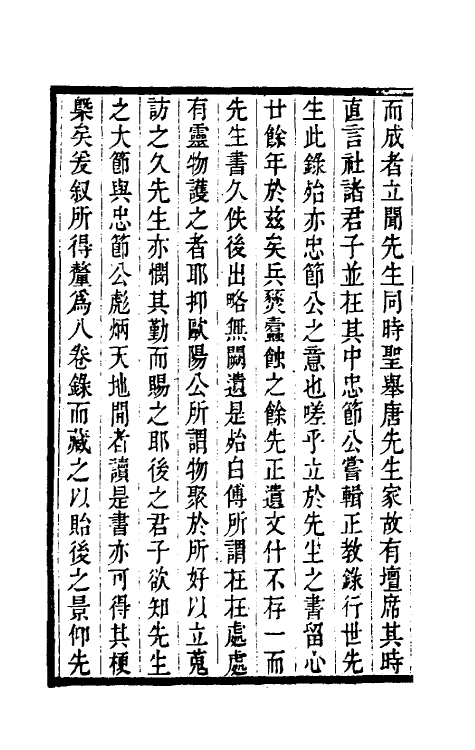 而成者立聞先生同時聖舉唐先生家故有壇席其時
直言社諸君子並在其中忠節公嘗輯正教錄行世先
生此錄殆亦忠節公之意也嗟乎立於先生之書留心
廿餘年於茲矣兵燹蠹蝕之餘先正遺文什不存一而
先生書久佚後出略無闕遺是殆白傅所謂在在處處
有靈物護之者耶抑歐陽公所謂物聚於所好以立蒐
訪之久先生亦憫其勤而賜之耶後之君子欲知先生
之大節與忠節公彪炳天地閒者讀是書亦可得其梗
槩矣爰叙所得釐爲八卷錄而藏之以貽後之景仰先